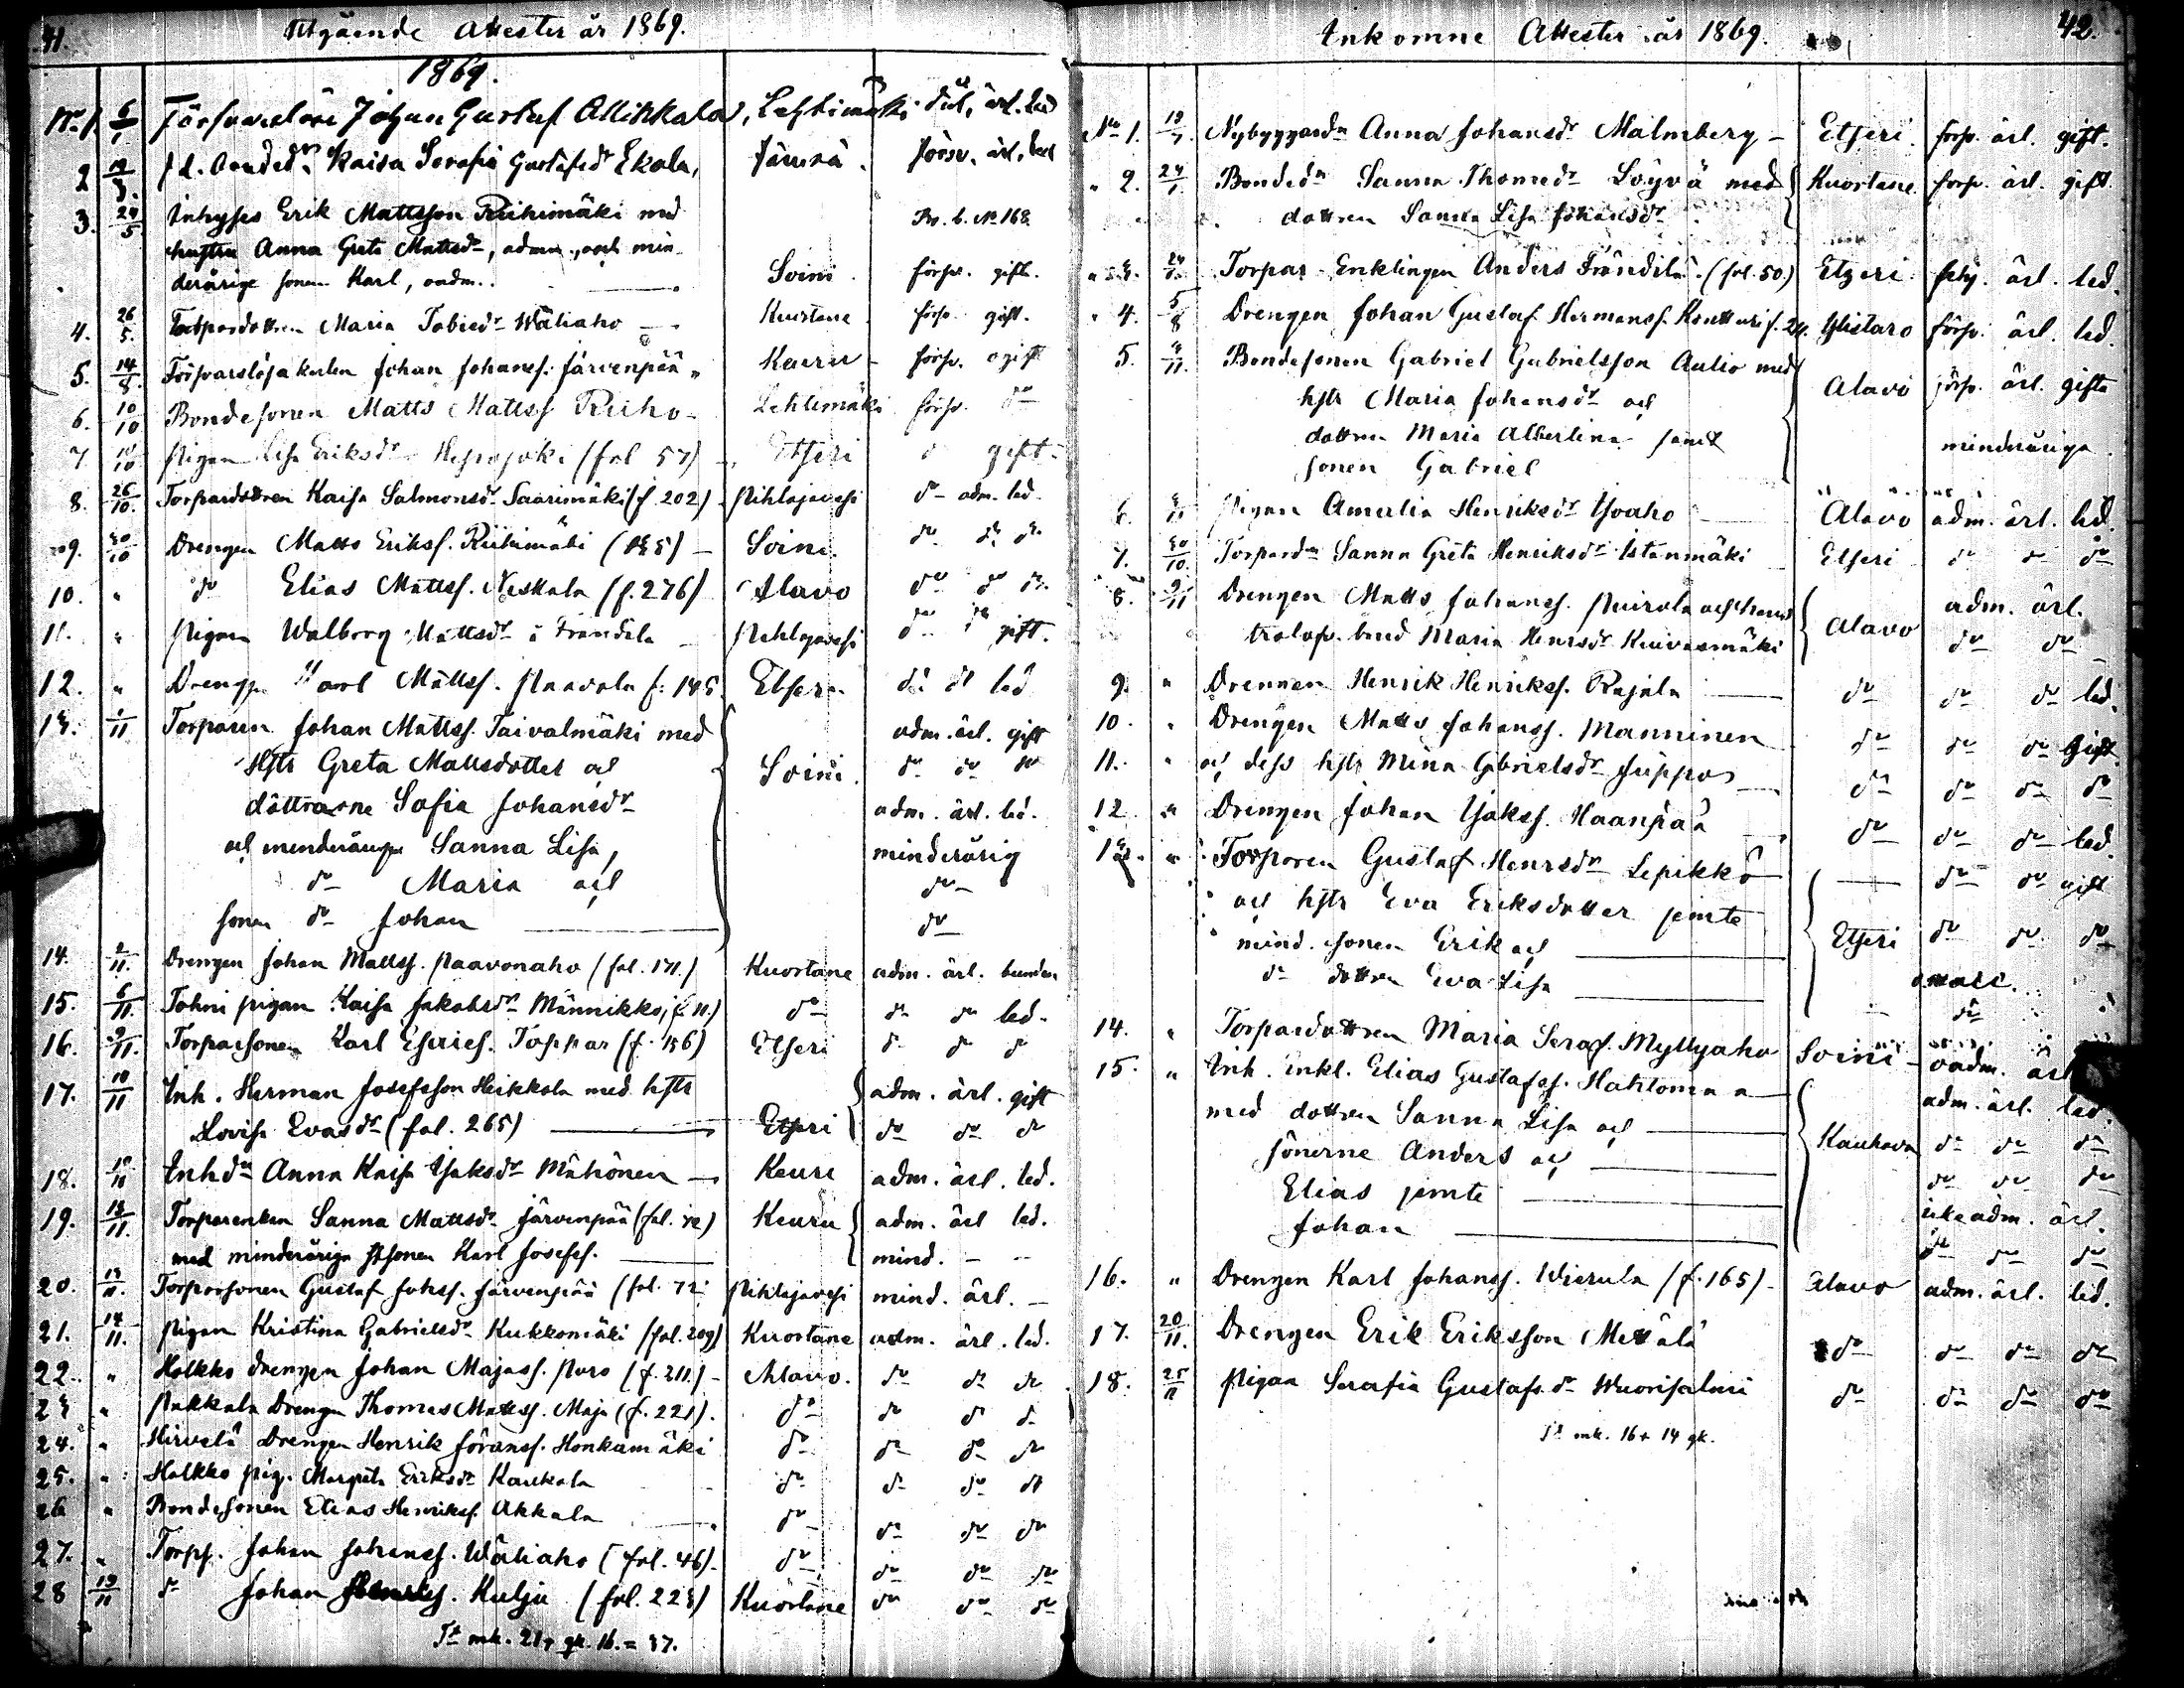 41.
Utgående Attester år 1869.
1869.
No 1. 6/1 Försvarslöse Johan Gustaf Allikkala, Lehtimäki ärl. led
2 19/3. f.d. Bonded. Kaisa Serafia Gustafsdr Ekola, Jämsä. försv. ärl. led
3. 24/5 Inhyses Erik Mattsson Riihimäki med Pr. b. No 168
hustru Anna Greta Mattsdr, adm., och min-
derårige sonen Karl, oadm.. Soini. försv. gifte.
4. 26/5. Torpardottren Maria Tobiedr Wäliaho Kuortane försv. gift.
5. 14/8. Försvarslösa karlen Johan Johanss. Järvenpää Keuru försv. ogift
6. 10/10 Bondesonen Matts Mattss. Riiho Lehtimäki försv. do
7. 14/10 Pigan Lisa Eriksdr Hepojoki (fol 57) Etseri d gift.
8. 26/10. Torpardottren Kaisa Salmonsdr Saarimäki (f. 202) Pihlajavesi do adm. led.
9. 30/10 Drengen Matts Erikss. Riihimäki (185) Soini do do do
10. " do Elias Mattss. Niskala (f. 276) Alavo do do do
11. " Pigan Walborg Mattsdr i Frändilä Pihlajavesi do do gift.
12. " Drengen Karl Mattss. Paavola f. 145 Etseri do do led
13. 1/11 Torparen Johan Mattss. Taivalmäki med adm. ärl. gift
Hstr Greta Mattsdotter och Soini. do do do
döttrarne Sofia Johansdr adm. ärl. led.
och minderåriga Sanna Lisa, minderårig
do Maria och do
sonen do Johan do
14. 2/11. Drengen Johan Mattss. Paavonaho (fol. 171.) Kuortane adm. ärl. bunden
15. 6/11. Tohni pigan Kaisa Jakobsdr Männikkö, (f. 11.) do do do led.
16. 9/11. Torparsonen Karl Esaiess. Toppar (f. 156) Etseri do do do
17. 10/11 Inh. Herman Josefsson Heikkola med hstr adm. ärl. gift
Lovisa Evasdr (fol. 265) Etseri do do do
18. 10/11 Inhdn Anna Kaisa Isaksdr Mähönen Keuru adm. ärl. led.
19. 13/11. Torparenkan Sanna Mattsdr Järvenpää (fol. 72) Keuru adm. ärl led.
med minderåriga sonen Karl Josefss. mind. - -
20. 13/11. Torparsonen Gustaf Johss. Järvenpää (fol. 72 Pihlajavesi mind. ärl. -
21. 14/11. Pigan Kristina Gabrielsdr Kukkomäki (fol. 209) Kuortane adm. ärl. led.
22. " Holkko drengen Johan Majass. Puro (f. 211.) Alavo. do do do
23 " Pakkala Drengen Thomas Mattss. Maja (f. 221). do do do do
24. " Hirvelä Drengen Henrik Johanss. Honkamäki do do do do
25. " Holkko pig. Margeta Eriksdr Kaukola do do do do
26 " Bondesonen Elias Henrikss. Akkala do do do do
27. " Torps. Johan Johanss. Wäliaho (fol. 46) do do do do
28 19/11 do Johan Kulju (fol. 223) Kuortane do do do
St mk. 21 + qk. 16. = 37.
42.
Inkomne Attester år 1869.
No 1. Nybyggardn Anna Johansdr Malmberg Etseri. försv. ärl. gift.
" 2. 24/1. Bondedn Sanna Thomasdr Löyvä med Kuortane försv. ärl. gift.
dottren Sanna Lisa Johansdr
" 3. 24/ Torpar-Enklingen Anders Frändilä. (fol. 50.) Etzeri ärl. led.
" 4. 5/8 Drengen Johan Gustaf Hermanss. Konttari f. 24. Ylistaro försv. ärl. led.
5. 11. Bondesonen Gabriel Gabrielsson Aulio med Alavo försv. ärl. gifta
hstr Maria Johansdr och
dottren Maria Albertina samt minderåriga.
sonen Gabriel
6. Pigan Amalia Henriksdr Isoaho Alavo adm. ärl. led.
7. 30/10. Torpardn Sanna Greta Henriksdr Istanmäki Etseri do do do
8. 9/11 Drengen Matts Johanss. Puirola och hans adm. ärl.
trolofv. brud Maria Henrsdr Kuivasmäki Alavo do do
9. " Drennen Henrik Henrikss. Rajala do do do led.
10. " Drengen Matts Johanss. Manninen do do do gift.
11. " och dess hstr Mina Gabrielsdr Juppo do do do do
12 " Drengen Johan Isakss. Haanpää do do do led.
13. " Torparen Gustaf Henrsdr Lepikkö do do gift
och hstr Eva Eriksdotter jemte Etseri do do do
mind. sonen Erik och
do dottren Eva Lisa do
14. " Torpardottren Maria Seraf. Myllyaho Soini oadm. ärl
15. " Inh. Enkl. Elias Gustafss. Hahtomaa adm. ärl. led.
med dottren Sanna Lisa och Kauhava do do do
sönerne Anders och do do do
Elias jemte icke adm. ärl.
Johan do do do
16. " Drengen Karl Johanss. Wierula (f. 165) Alavo adm. ärl. led.
17. 20/11. Drengen Erik Eriksson Mettälä do do do do
18. 25/11 Pigan Serafia Gustafs.dr Wuorisalmi do do do do
St mk. 16 + 14 qk.